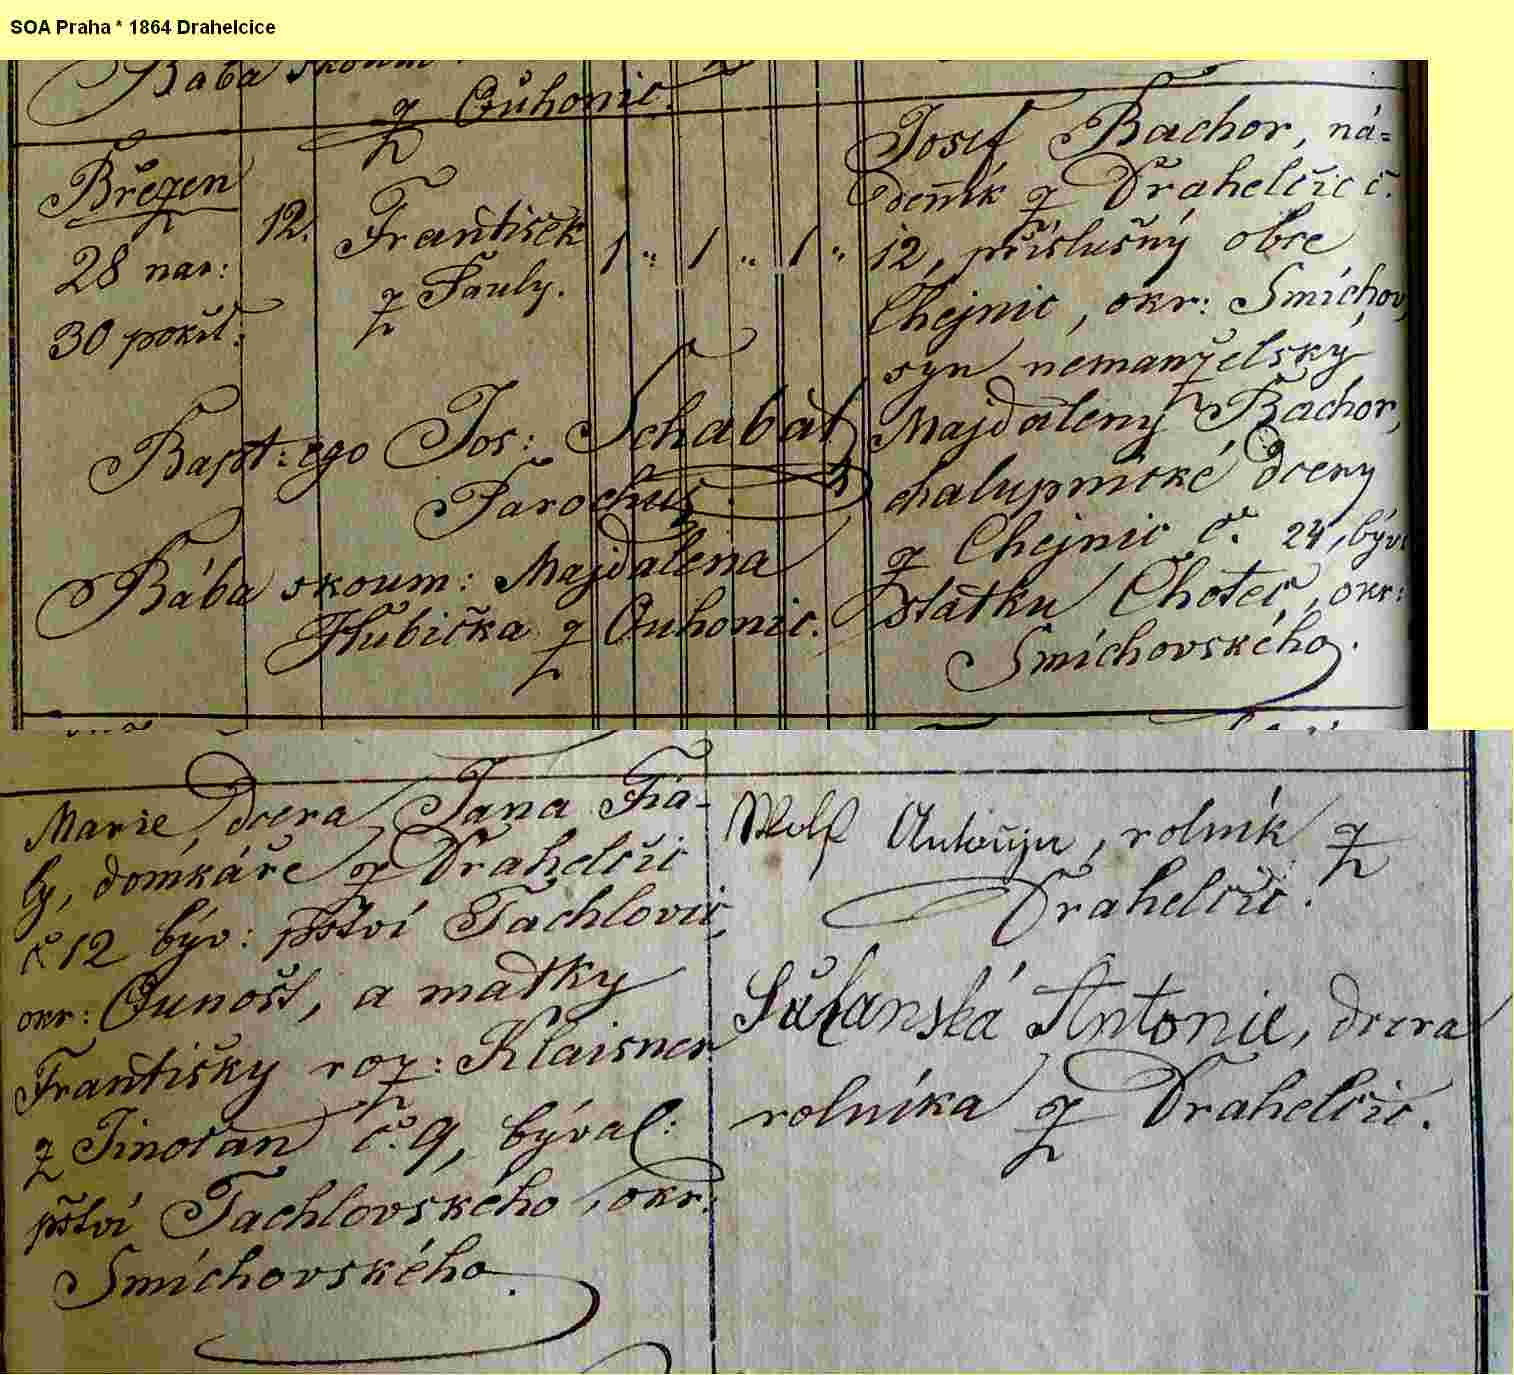 SOA Praha * 1864 Drahelcice
Bába skoum:
z Ouhonic.
Březen
28 nar:
30 pokřt:
12.
František
z Pauly.
1 " 1 " 1 "
Josef Bachor, ná=
denník z Drahelčic č.
12, příslušný obce
Chejnic, okr: Smíchov,
syn nemanželský
Majdaleny Bachor,
chalupnické dcery
z Chejnic č. 24, býv:
statku Choteč, okr:
Smíchovského.
Bapt: ego Jos: Schabat
Parochus.
Bába skoum: Majdalena
Hubička z Ouhonic.
Marie, dcera Jana Fia-
ly, domkáře z Drahelčic
č 12 býv: pství Tachlovic,
okr: Ounošt, a matky
Františky roz: Klaisner
z Jinočan č. 9, býval:
pství Tachlovského, okr:
Smíchovského.
Wolf Antonín, rolník z
Drahelčic.
Antonie, dcera
rolníka z Drahelčic.